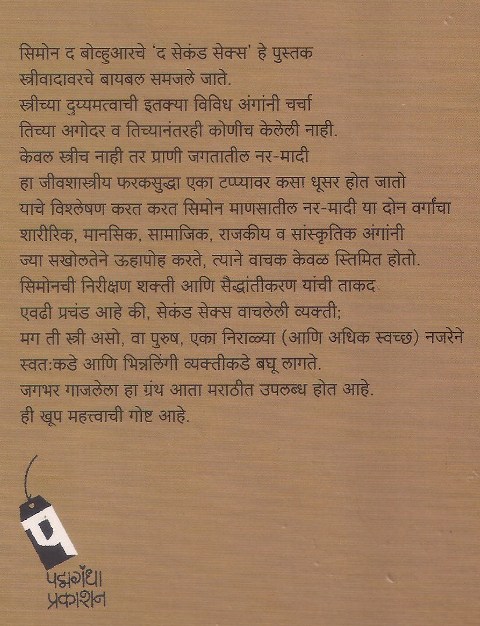 सिमोन द बोव्हुआरचे ‘द सेकंड सेक्स’ हे पुस्तक
स्त्रीवादावरचे बायबल समजले जाते.
स्त्रीच्या दुय्यमत्वाची इतक्या विविध अंगांनी चर्चा
तिच्या अगोदर व तिच्यानंतरही कोणीच केलेली नाही.
केवळ स्त्रीच नाही तर प्राणी जगतातील नर-मादी
हा जीवशास्त्रीय फरकसुद्धा एका टप्प्यावर कसा धूसर होत जातो
याचे विश्लेषण करत करत सिमोन माणसातील नर-मादी या दोन वर्गांचा
शारीरिक, मानसिक, सामाजिक, राजकीय व सांस्कृतिक अंगांनी
ज्या सखोलतेने ऊहापोह करते, त्याने वाचक केवळ स्तिमित होतो.
सिमोनची निरीक्षण शक्ती आणि सैद्धांतीकरण यांची ताकद
एवढी प्रचंड आहे की, सेकंड सेक्स वाचलेली व्यक्ती;
मग ती स्त्री असो, वा पुरुष, एका निराळ्या (आणि अधिक स्वच्छ) नजरेने
स्वतःकडे आणि भिन्नलिंगी व्यक्तीकडे बघू लागते.
जगभर गाजलेला हा ग्रंथ आता मराठीत उपलब्ध होत आहे.
ही खूप महत्त्वाची गोष्ट आहे.
प
पद्मगंधा
प्रकाशन